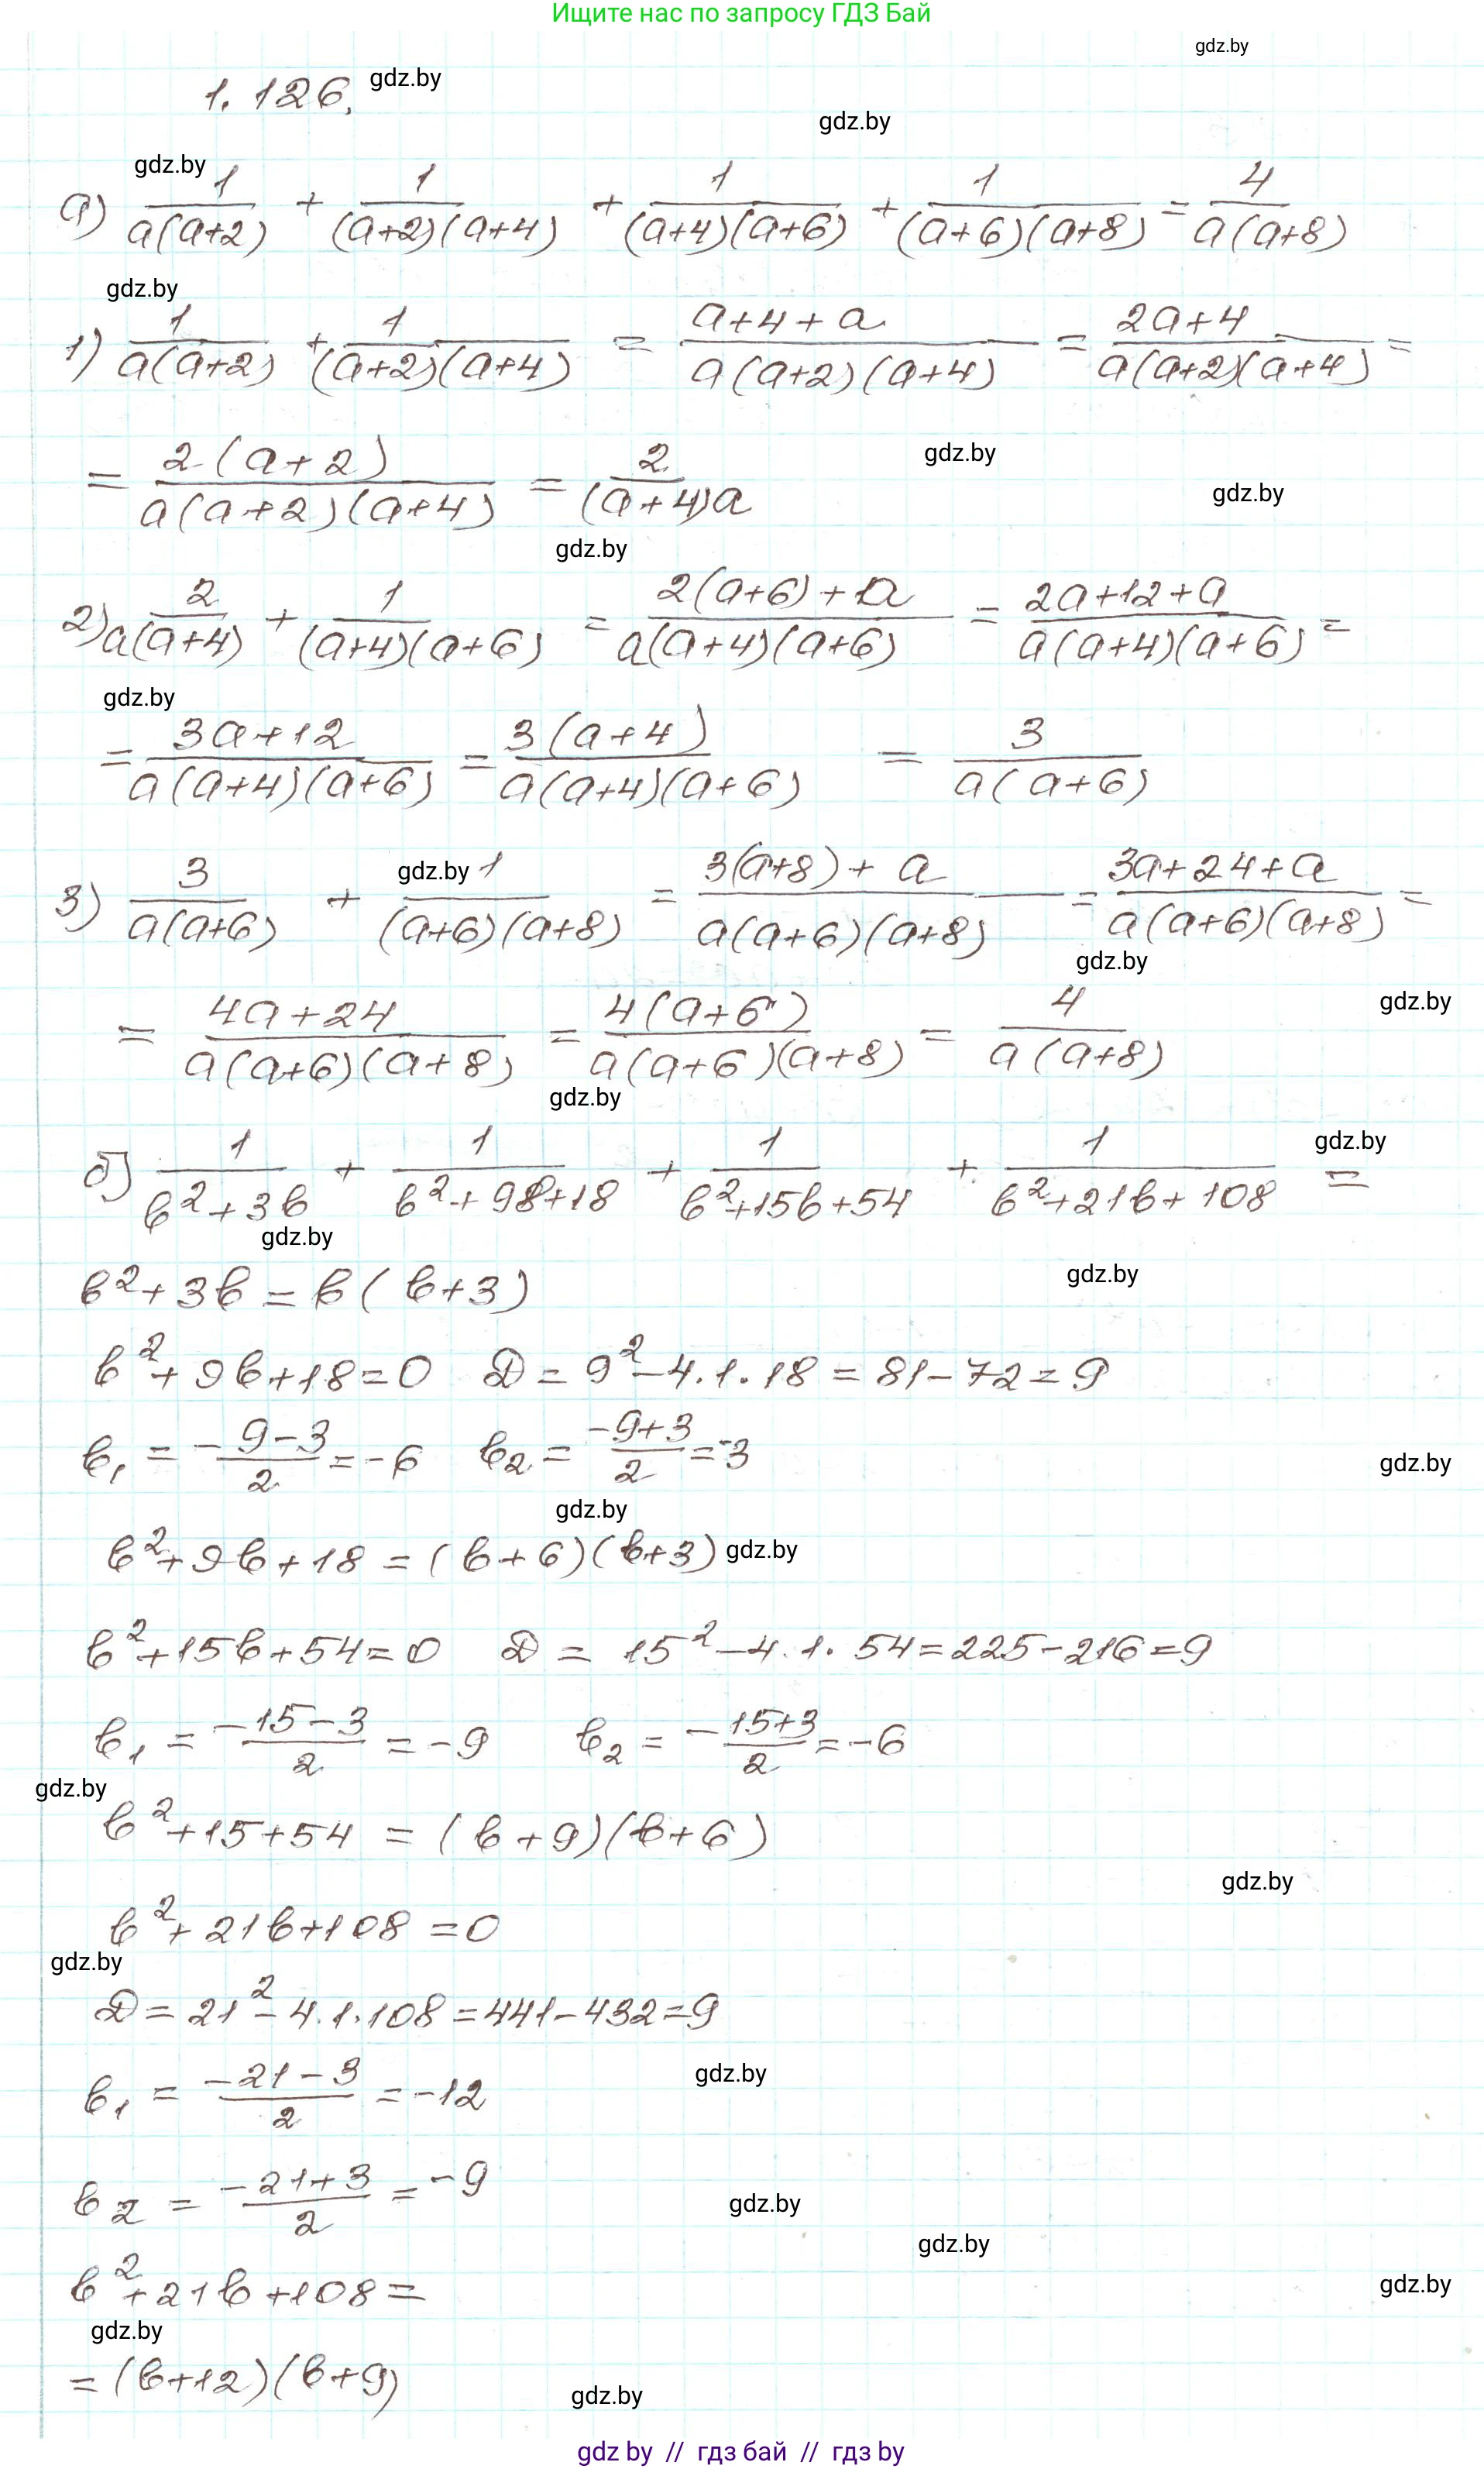 Ищите нас по запросу ГДЗ Бай
gdz.by
1.126. gdz.by
gdz.by
gdz.by
а) 1/(a(a+2)) + 1/((a+2)(a+4)) + 1/((a+4)(a+6)) + 1/((a+6)(a+8)) = 4/(a(a+8))
gdz.by
1) 1/(a(a+2)) + 1/((a+2)(a+4)) = (a+4+a)/(a(a+2)(a+4)) = (2a+4)/(a(a+2)(a+4)) =
= 2(a+2)/(a(a+2)(a+4)) = 2/((a+4)a)
gdz.by
gdz.by
gdz.by
2) 2/(a(a+4)) + 1/((a+4)(a+6)) = (2(a+6)+a)/(a(a+4)(a+6)) = (2a+12+a)/(a(a+4)(a+6)) =
gdz.by
= (3a+12)/(a(a+4)(a+6)) = 3(a+4)/(a(a+4)(a+6)) = 3/(a(a+6))
gdz.by
3) 3/(a(a+6)) + 1/((a+6)(a+8)) = (3(a+8)+a)/(a(a+6)(a+8)) = (3a+24+a)/(a(a+6)(a+8)) =
gdz.by
gdz.by
= (4a+24)/(a(a+6)(a+8)) = 4(a+6)/(a(a+6)(a+8)) = 4/(a(a+8))
gdz.by
gdz.by
б) 1/(b²+3b) + 1/(b²+9b+18) + 1/(b²+15b+54) + 1/(b²+21b+108) =
gdz.by
gdz.by
b²+3b = b(b+3)
b²+9b+18=0 D = 9²-4·1·18 = 81-72=9
b₁ = (-9-3)/2 = -6 b₂ = (-9+3)/2 = -3
gdz.by
gdz.by
b²+9b+18 = (b+6)(b+3) gdz.by
b²+15b+54=0 D = 15²-4·1·54=225-216=9
b₁ = (-15-3)/2 = -9 b₂ = (-15+3)/2 = -6
gdz.by
b²+15+54 = (b+9)(b+6)
gdz.by
b²+21b+108=0
gdz.by
D = 21²-4·1·108=441-432=9
gdz.by
b₁ = (-21-3)/2 = -12
b₂ = (-21+3)/2 = -9
gdz.by
gdz.by
b²+21b+108=
gdz.by
gdz.by
= (b+12)(b+9)
gdz.by
gdz by // гдз бай // гдз by